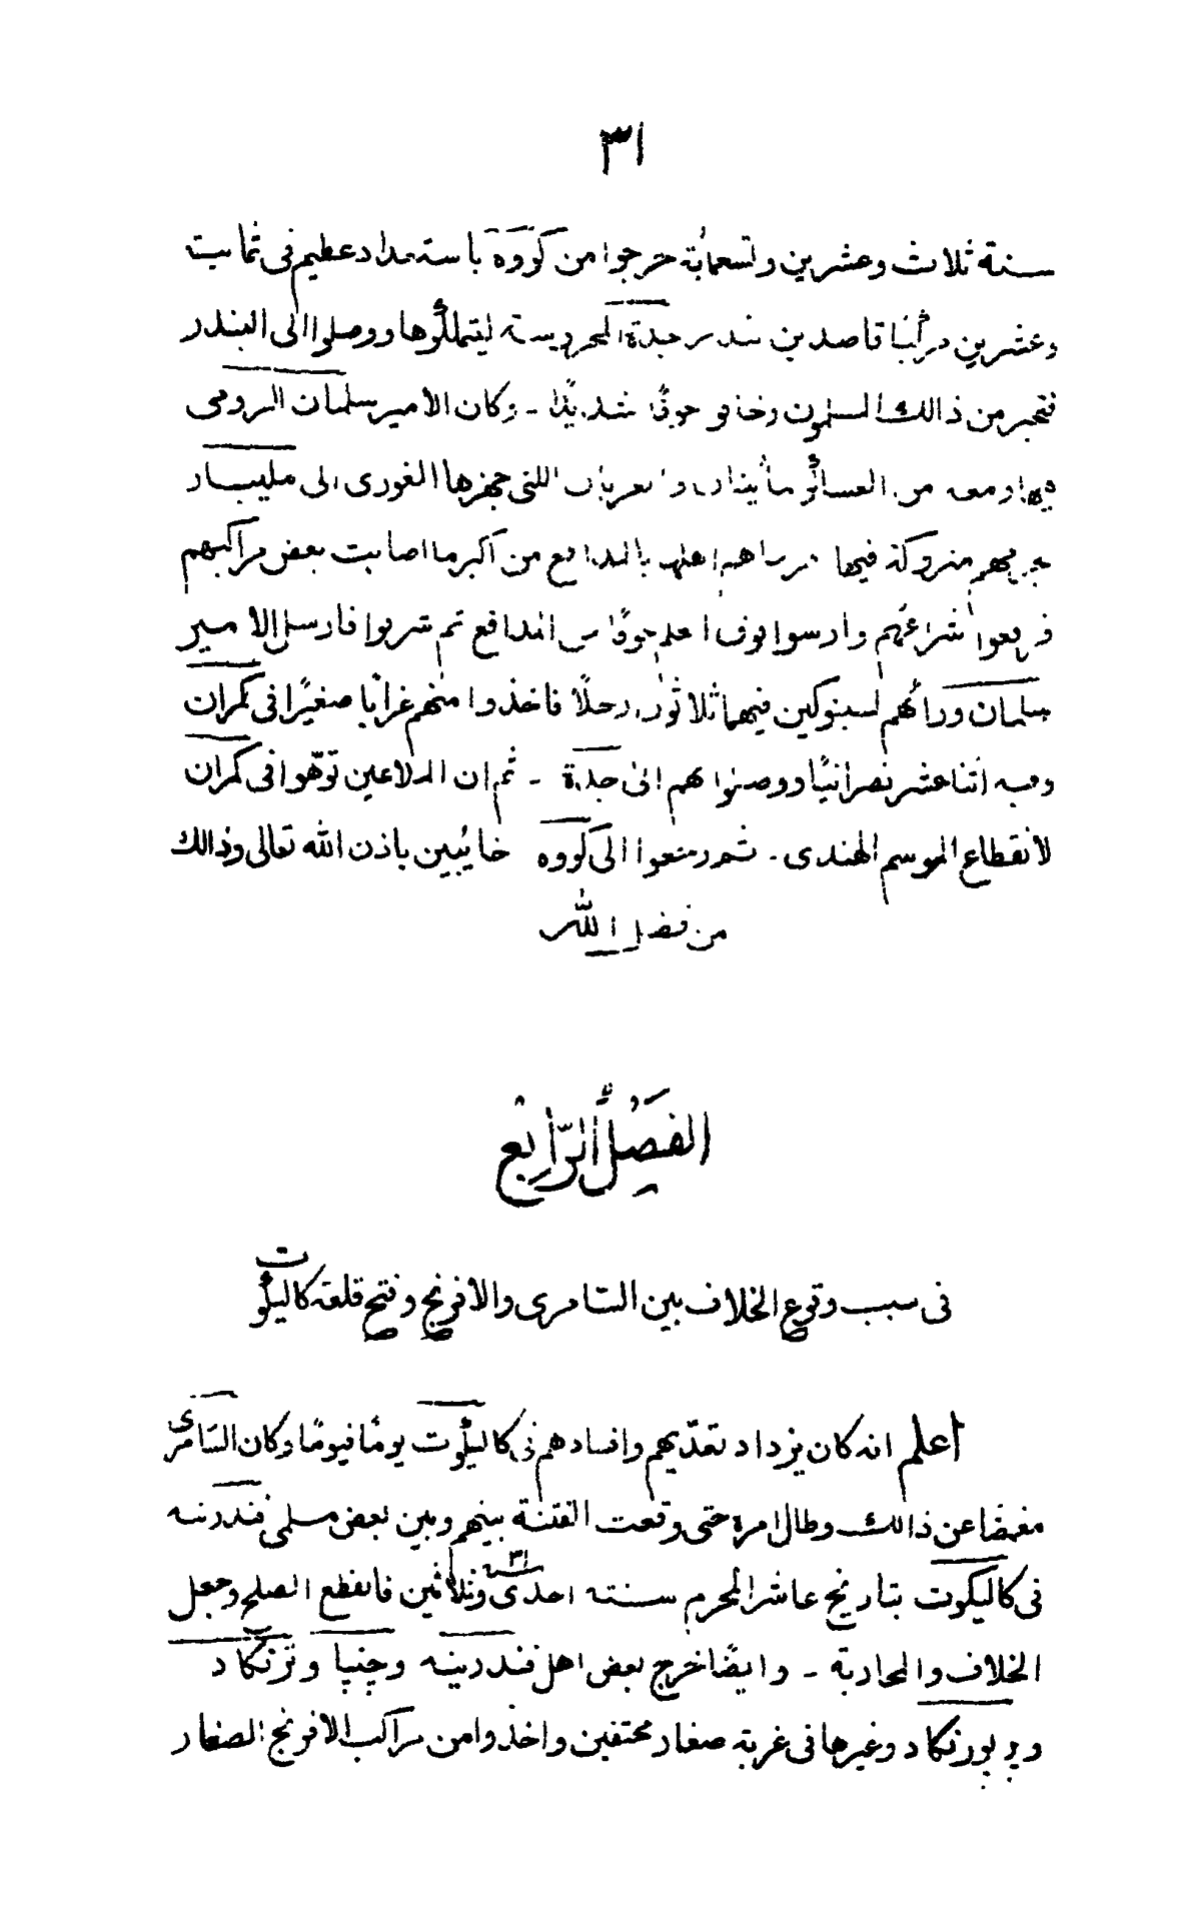 ٣١
سنة ثلاث وعشرين وتسعمائة خرجوا من كووة باستعداد عظيم فى ثمانيت
وعشرين مركبا قاصدين بندر جدة المحروسة ليتملكوها ووصلوا الى البندر
فتحير من ذالك المسلمون وخافو خوفًا شديدًا - وكان الامير سلمان الرومى
فيها ومعه من العسائر اللتى جهزها الغورى الى مليبار
متروكة فيها بالمدافع من اكبرها اصابت بعض مراكبهم
فرفعوا شراعهم وارسوا خوفًا من المدافع ثم شربوا فارسل الامير
سلمان ورائهم لسنبوكين فيهما ثلاثون رجلًا فاخذوا منهم غرابًا صغيرًا فى كمران
وفيه اثنا عشر نصرانيًا ووصلوا بهم الى جدة - ثم ان الملاعين توّهوا فى كمران
لانقطاع الموسم الهندى - ثم رجعوا الى كووه خائبين باذن الله تعالى وذالك
من فضل الله
الفَصْلُ الرَّابِعُ
فى سبب وقوع الخلاف بين السّامرى والافرنج وفتح قلعة كاليكوت
اعلم انه كان يزداد تعدّيهم وافسادهم فى كاليكوت يومًا فيومًا وكان السّامرى
مغمضا عن ذالك وطال امره حتى وقعت الفتنة بينهم وبين بعض مسلمى فندرينه
فى كاليكوت بتاريخ عاشر المحرم سنته احدى وثلاثين ٣١ فانقطع الصلح وجعل
الخلاف والمحاربة - وايضًا خرج بعض اهل فندرينه وچنپا وترنكاد
وپرپورنكاد وغيرها فى غربة صغار مختفين واخذوا من مراكب الافرنج الصغار